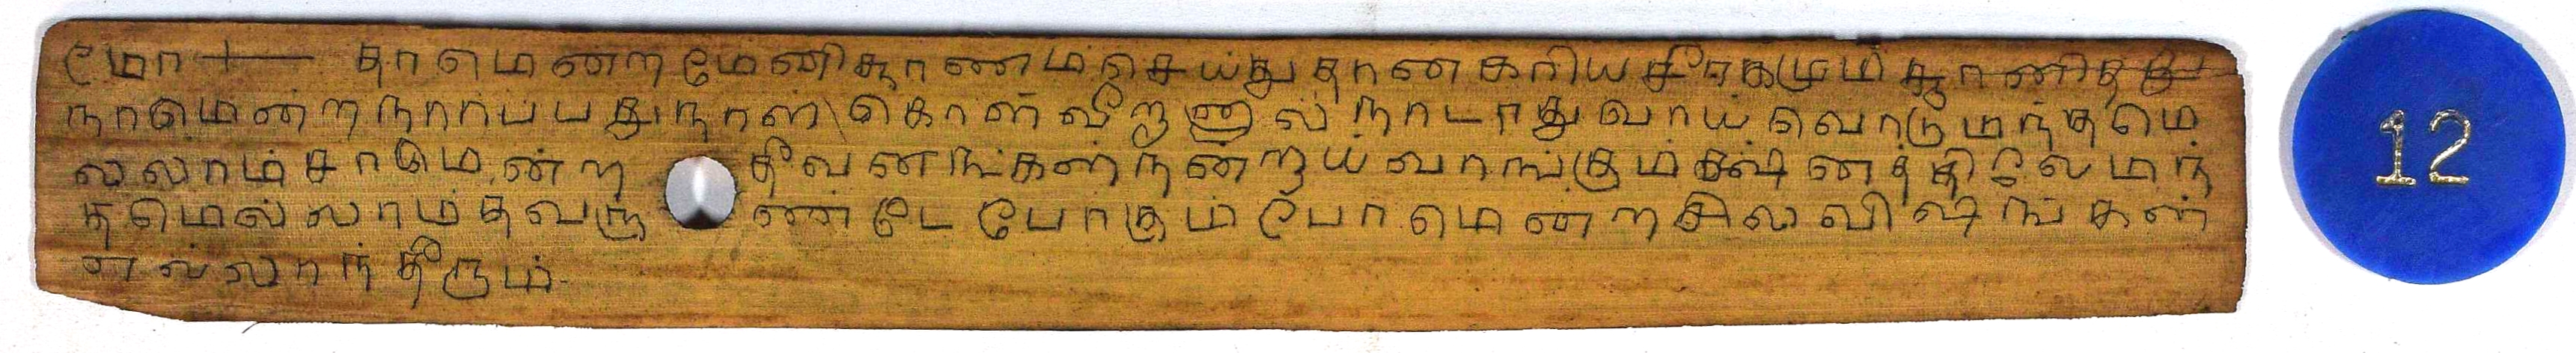 மோ + தாமென்ற மேனிசூரணம் செய்து தான கரிய சீரகமும் சூரணித்து
நாமென்ற நாற்ப்பது நாள் கொள் வீறானால் நாடாது வாய்வொடு மந்தமெ
ல்லாம் சாமென்ற தீவனங்கள் நன்றாய் வாங்கும் க்ஷனத்திலே மந்
தமெல்லாம் தவறுண்டே போகும் போமென்ற சில விஷங்கள்
எல்லாந் தீரும்
12